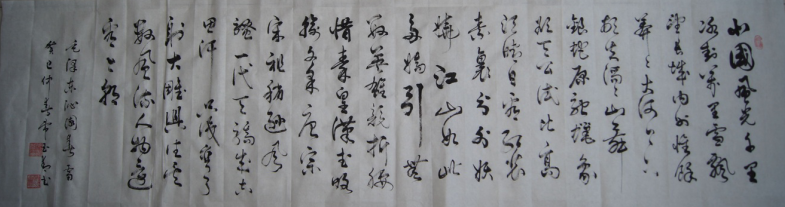 北國風光千里
冰封萬里雪飄
望長城內外惟餘
莽々大河上下
頓失滔々山舞
銀蛇原馳蠟象
欲与天公試比高
須晴日看紅裝
素裹分外妖
嬈江山如此
多嬌引無
數英雄競折腰
惜秦皇漢武略
輸文采唐宗
宋祖稍遜風
騷一代天驕成吉
思汗只識彎弓
射大雕俱往矣
數風流人物還
看今朝
毛澤東沁園春雪
癸巳仲春